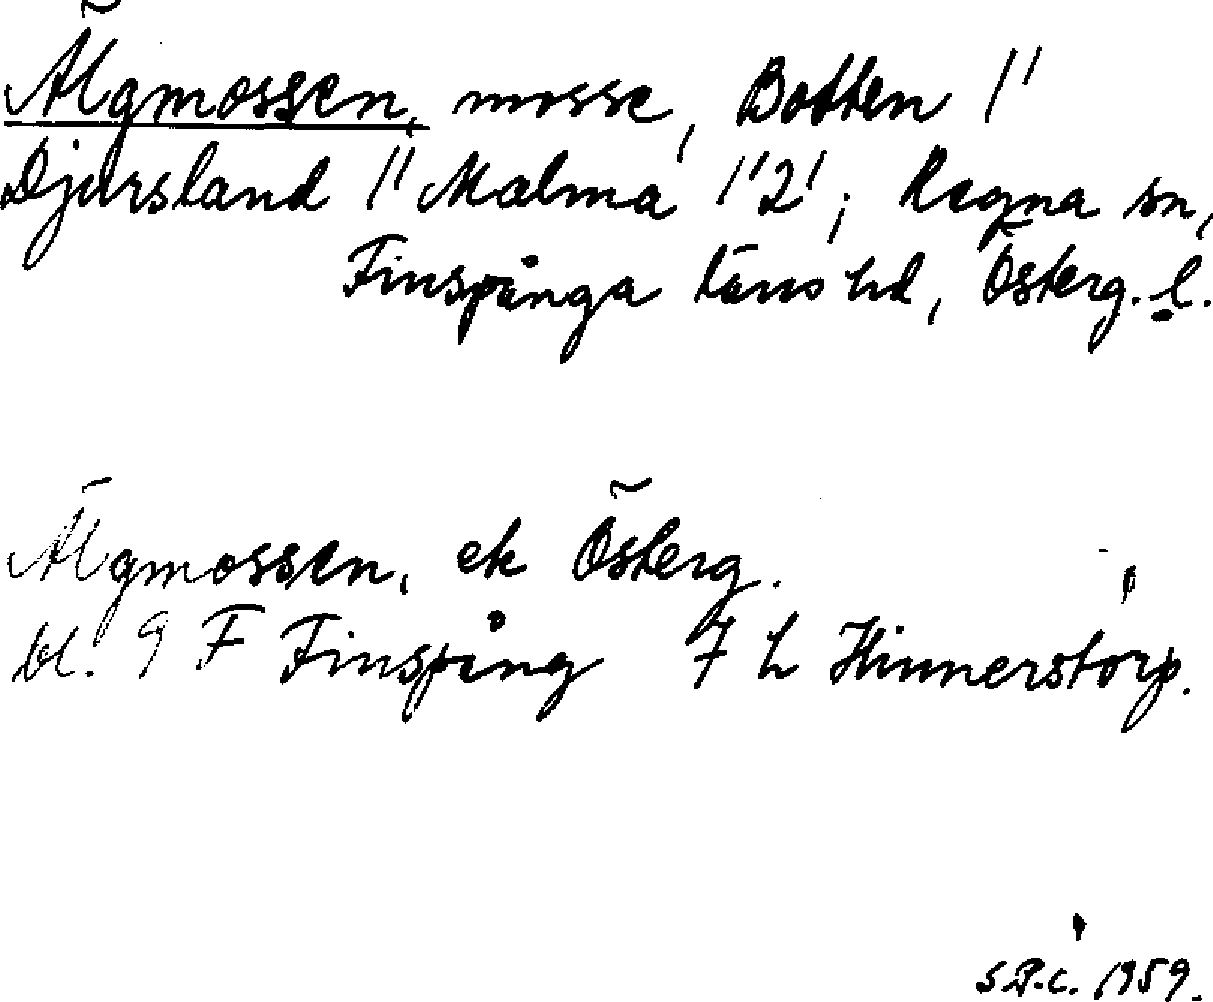 Älgmossen, mosse, Botten 1¹
Djursland 1¹ Malma 1¹2¹; Regna sn,
Finspånga läns hd, Österg. l.
Älgmossen, ek Österg.
bl. 9 F Finspång 7 h Hinnerstorp.
S.P.C. 1959.